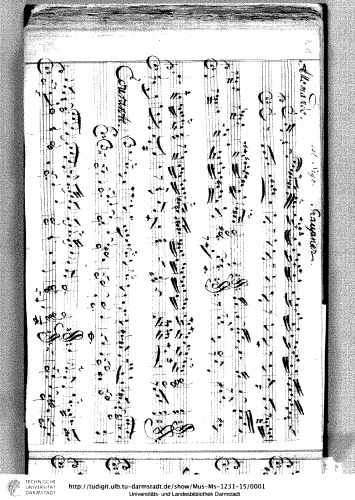 Allemande. del Sigr. Graupner.
Courante
TECHNISCHE
UNIVERSITÄT
DARMSTADT
http://tudigit.ulb.tu-darmstadt.de/show/Mus-Ms-1231-15/0001
Universitäts- und Landesbibliothek Darmstadt